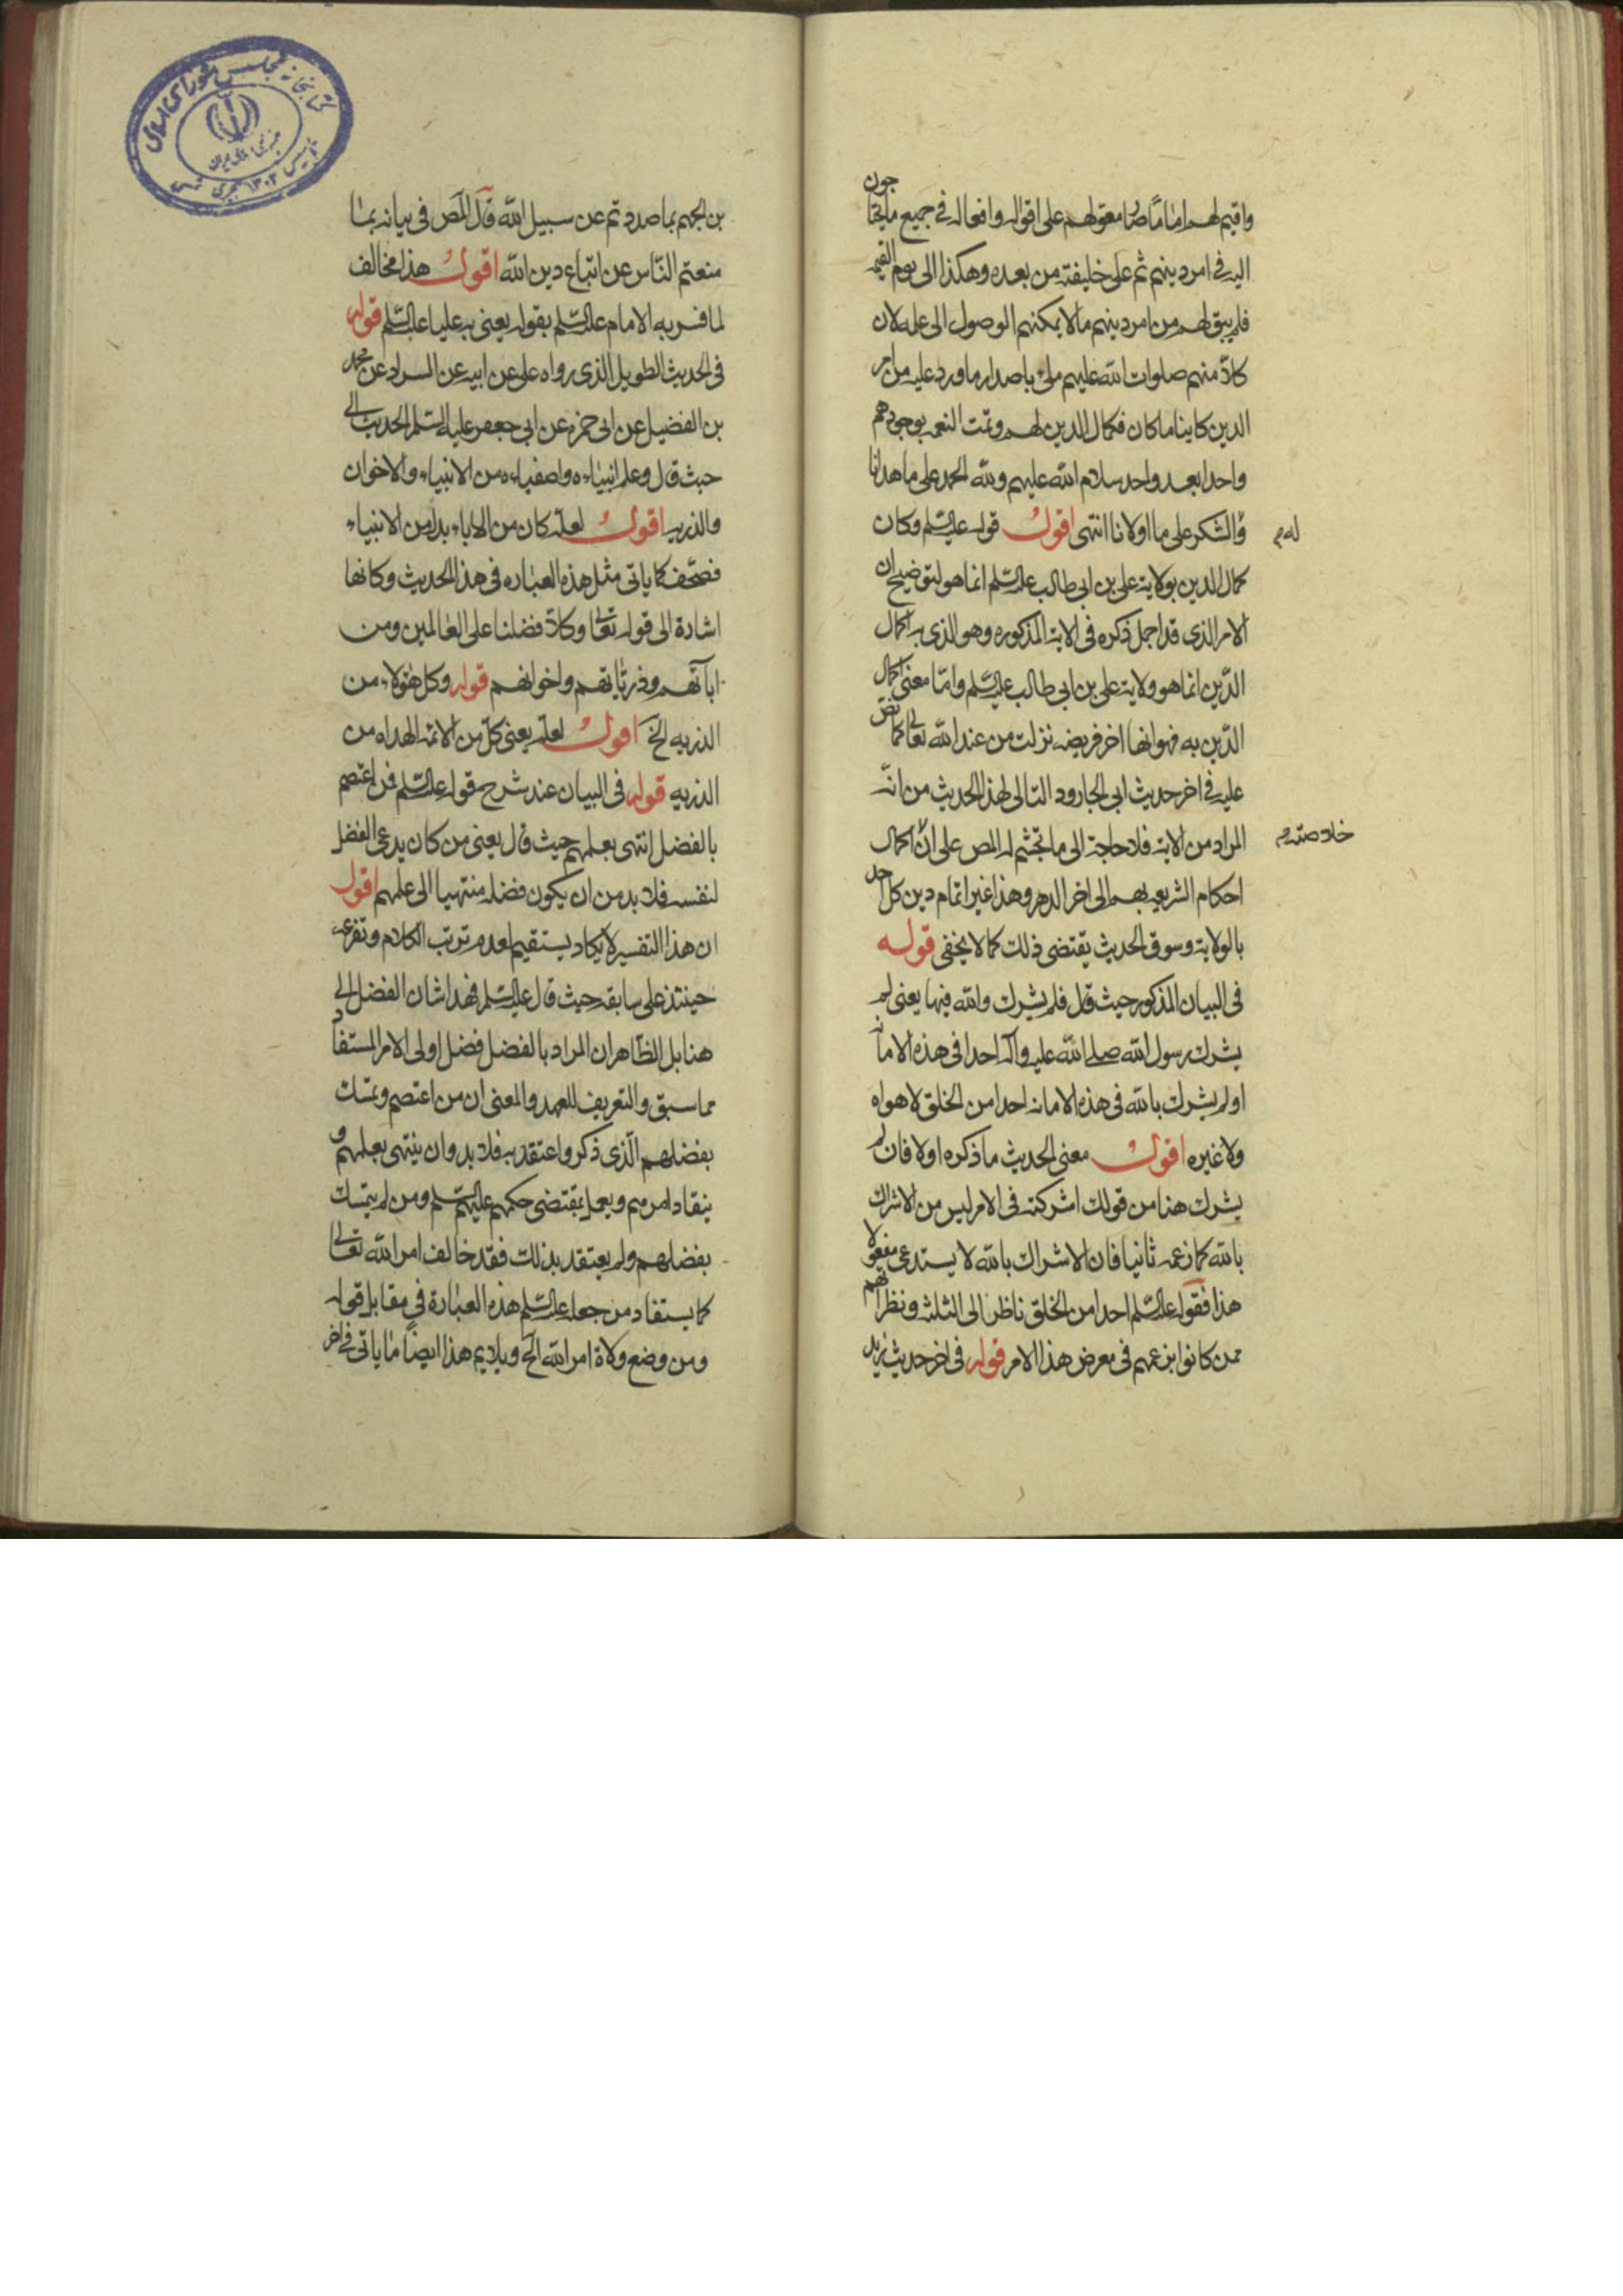 واقيم لهم اماما صار معولهم على اقواله وافعاله فى جميع ما يحتاجون
اليه فى امر دينهم ثم على خليفته من بعده وهكذا الى يوم القيمه
فلم يبق لهم من امر دينهم ما لا يمكنهم الوصول الى علمه لان
كلا منهم صلوات الله عليهم ملئ باصدار ما ورد عليه من امر
الدين كاينا ما كان فكمال الدين لهم وتمت النعمه بوجودهم
واحدا بعد واحد سلام الله عليهم ولله الحمد على ما هدانا
والشكر على ما اولانا انتهى اقول قوله عليه السلم وكان
له م
كمال الدين بولاية على بن ابى طالب عليه السلم انما هو لتوضيح ان
الامر الذى قد اجمل ذكره فى الاية المذكوره وهو الذى به اكمال
الدين انما هو ولاية على بن ابى طالب عليه السلم واما معنى اكمال
الدين به فهو انها اخر فريضه نزلت من عند الله تعالى كما نص
عليه فى اخر حديث ابى الجارود التالى لهذا الحديث من انه
المراد من الاية فلا حاجة الى ما تجثم له المص على ان اكمال
خلاصته م
احكام الشريعه بهم الى اخر الدهر وهذا غير اتمام دين كل احد
بالولاية وسوق الحديث يقتضى ذلك كما لا يخفى قوله
فى البيان المذكور حيث قال فلم يشرك والله فيها يعنى لم
يشرك رسول الله صلى الله عليه وآله احدا فى هذه الامانه
او لم يشرك بالله فى هذه الامانه احدا من الخلق لا هواه
ولا غيره اقول معنى الحديث ما ذكره اولا فان لم
يشرك هنا من قولك اشركته فى الامر ليس من الاشراك
بالله كما زعمه ثانيا فان الاشراك بالله لا يستدعى مفعولا
هذا فقوله عليه السلم احدا من الخلق ناظر الى الثلثه ونظرائهم
ممن كانوا بزعمهم فى معرض هذا الامر قوله فى اخر حديث يزيد
بن الجهم بما صددتم عن سبيل الله قال المص فى بيانه بما
منعتم الناس عن اتباع دين الله اقول هذا مخالف
لما فسر به الامام عليه السلم بقوله يعنى به عليا عليه السلم قوله
فى الحديث الطويل الذى رواه على عن ابيه عن السراد عن محمد
بن الفضيل عن ابى حمزه عن ابى جعفر عليه السلم الحديث الى
حيث قال وعلم انبياءه واصفياءه من الانبياء والاخوان
والذريه اقول لعله كان من الاباء بدل من الانبياء
فصحف كما ياتى مثل هذه العباره فى هذا الحديث وكانها
اشارة الى قوله تعالى وكلا فضلنا على العالمين ومن
ابآئهم وذرياتهم واخوانهم قوله وكل هؤلاء من
الذريه الخ اقول لعله يعنى كل من الائمة الهداه من
الذريه قوله فى البيان عند شرح قوله عليه السلم فمن اعتصم
بالفضل انتهى بعلمهم حيث قال يعنى من كان يدعى الفضل
لنفسه فلا بد من ان يكون فضله منتهيا الى علمهم اقول
ان هذا التفسير لا يكاد يستقيم لعدم ترتب الكلام وتفرعه
حينئذ على سابقه حيث قال عليه السلم فهذا شان الفضل الى
هنا بل الظاهر ان المراد بالفضل فضل اولى الامر المستفاد
مما سبق والتعريف للعهد والمعنى ان من اعتصم وتمسك
بفضلهم الذى ذكر واعتقد به فلا بد وان ينتهى بعلمهم و
ينقاد امرهم ويعمل بمقتضى حكمهم عليهم السلم ومن لم يتمسك
بفضلهم ولم يعتقد بذلك فقد خالف امر الله تعالى
كما يستفاد من جعله عليه السلم هذه العبارة فى مقابل قوله
ومن وضع ولاة امر الله الخ ويلايم هذا ايضا ما ياتى فى اخر